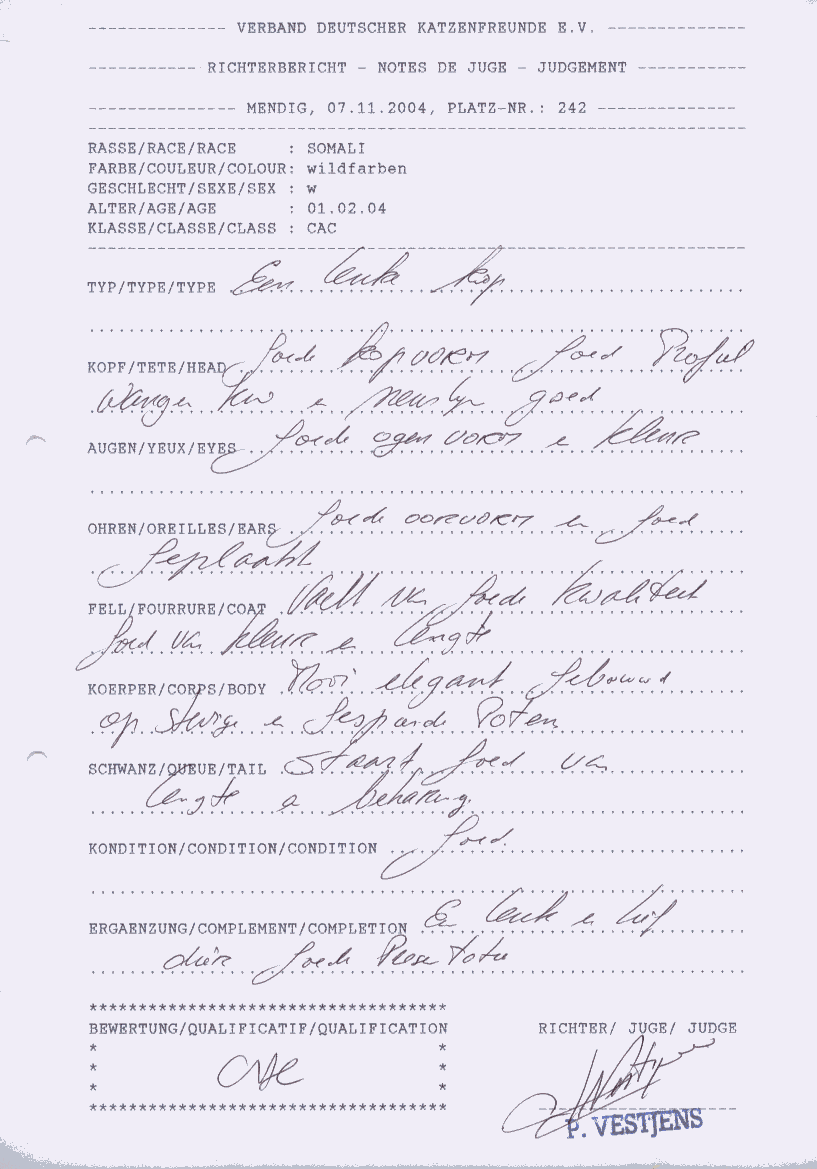 -------------- VERBAND DEUTSCHER KATZENFREUNDE E.V. --------------
----------- RICHTERBERICHT - NOTES DE JUGE - JUDGEMENT -----------
--------------- MENDIG, 07.11.2004, PLATZ-NR.: 242 --------------
RASSE/RACE/RACE : SOMALI
FARBE/COULEUR/COLOUR: wildfarben
GESCHLECHT/SEXE/SEX : w
ALTER/AGE/AGE : 01.02.04
KLASSE/CLASSE/CLASS : CAC
TYP/TYPE/TYPE Een leuke kop
KOPF/TETE/HEAD goede kopvorm goed Profiel
Wangen kin en neuslijn goed
AUGEN/YEUX/EYES goede ogen vorm en kleur
OHREN/OREILLES/EARS goede oorvorm en goed
geplaatst
FELL/FOURRURE/COAT Vacht van goede kwaliteit
goed van kleur en lengte
KOERPER/CORPS/BODY Mooi elegant gebouwd
op stevige en gespierde Poten
SCHWANZ/QUEUE/TAIL Staart goed van
lengte en beharing.
KONDITION/CONDITION/CONDITION goed.
ERGAENZUNG/COMPLEMENT/COMPLETION Een leuk en lief
dier goede Presentatie
************************************
BEWERTUNG/QUALIFICATIF/QUALIFICATION RICHTER/ JUGE/ JUDGE
* *
* *
* *
************************************
P. VESTJENS